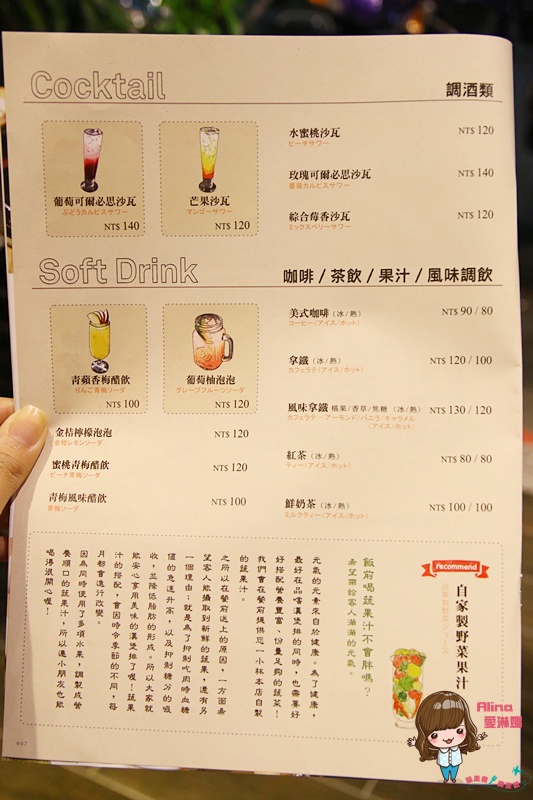 Cocktail
調酒類
葡萄可爾必思沙瓦
ぶどうカルピスサワー
NT$ 140
芒果沙瓦
マンゴーサワー
NT$ 120
水蜜桃沙瓦
ピーチサワー
NT$ 120
玫瑰可爾必思沙瓦
薔薇カルピスサワー
NT$ 140
綜合莓香沙瓦
ミックスベリーサワー
NT$ 120
Soft Drink
咖啡 / 茶飲 / 果汁 / 風味調飲
青蘋香梅醋飲
りんご青梅ソーダ
NT$ 100
葡萄柚泡泡
グレープフルーツソーダ
NT$ 120
金桔檸檬泡泡
金柑レモンソーダ
NT$ 120
蜜桃青梅醋飲
ピーチ青梅ソーダ
NT$ 120
青梅風味醋飲
青梅ソーダ
NT$ 100
美式咖啡（冰/熱）
コーヒー（アイス/ホット）
NT$ 90 / 80
拿鐵（冰/熱）
カフェラテ（アイス/ホット）
NT$ 120 / 100
風味拿鐵 榛果/香草/焦糖（冰/熱）
カフェラテ - アーモンド/バニラ/キャラメル
（アイス/ホット）
NT$ 130 / 120
紅茶（冰/熱）
ティー（アイス/ホット）
NT$ 80 / 80
鮮奶茶（冰/熱）
ミルクティー（アイス/ホット）
NT$ 100 / 100
recommend
自家製野菜果汁
飯前喝蔬果汁不會胖嗎？
希望開給客人滿滿的元氣。
元氣的元素來自於健康。為了健康，
最好在品嚐漢堡排的同時，也需要好
好搭配營養豐富、份量足夠的蔬菜！
我們會在餐前提供您一小杯本店自製
的蔬果汁。
之所以在餐前送上的原因，一方面希
望客人能攝取到新鮮的蔬果，還有另
一個理由：就是為了抑制吃肉時血糖
值的急速升高，以及抑制糖分的吸
收，並降低脂肪的形成。所以大家就
能安心享用美味的漢堡排了喔！蔬果
汁的搭配，會因時令季節的不同，每
月都會進行改變。
因為同時使用了多項水果，調製成營
養順口的蔬果汁，所以連小朋友也能
喝得很開心喔！
007
Alina
愛琳娜